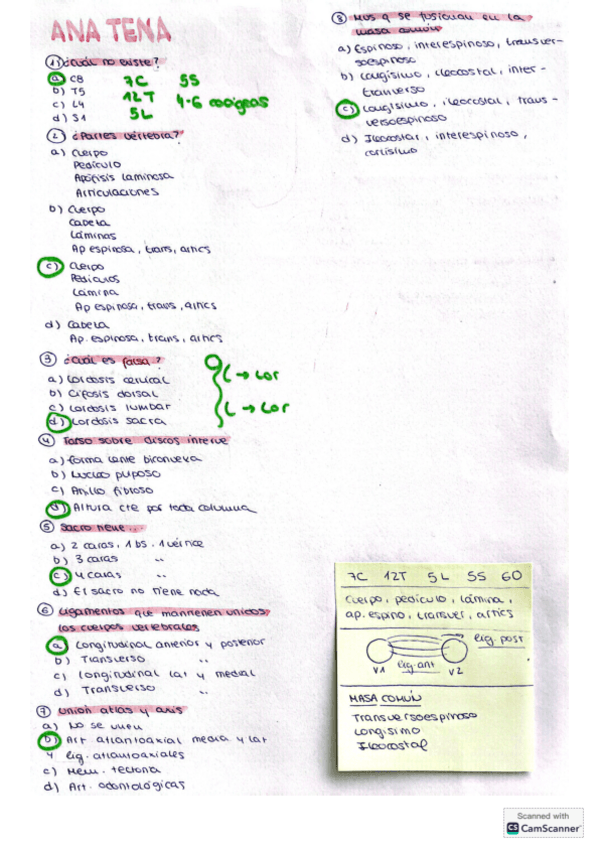 ANATENA
① ¿Cuál no existe?
a) C8
b) T5
c) L4
d) S1
7C 5S
12T 4-6 coxígeas
5L
② ¿Partes vértebra?
a) Cuerpo
Pedículo
Apófisis laminosa
Articulaciones
b) Cuerpo
Cabeza
Láminas
Ap espinosa, trans, artics
c) Cuerpo
Pedículos
Lámina
Ap espinosa, travs, artics
d) Cabeza
Ap. espinosa, trans, artics
③ ¿Cuál es falsa?
a) Lordosis cervical
b) Cifosis dorsal
c) Lordosis lumbar
d) Lordosis sacra
C → Lor
L → Lor
④ Falso sobre discos interve
a) forma lente biconvexa
b) Nucleo pulposo
c) Anillo fibroso
d) Altura cte por toda columna
⑤ Sacro tiene...
a) 2 caras, 1 bs. 1 vérice
b) 3 caras "
c) 4 caras "
d) El sacro no tiene nada
⑥ Ligamentos que mantienen unidos
los cuerpos vertebrales
a) Longitudinal anterior y posterior
b) Transverso "
c) Longitudinal lat y medial
d) Transverso "
⑦ Unión atlas y axis
a) No se unen
b) Art atlantoaxial media y lat
y lig. atlantoaxiales
c) Mem. tectoria
d) Art. odontológicas
⑧ Mus q se fusionan en la
masa común
a) Espinoso, interespinoso, transver-
soespinoso
b) Longísimo, Ileocostal, inter-
tranverso
c) Longísimo, ileocostal, trans-
versoespinoso
d) Ileocostar, interespinoso,
cortísimo
7C 12T 5L 5S 60
Cuerpo, pedículo, lámina,
ap. espino, transver, artics
lig. post
V1 lig. ant V2
MASA COMÚN
Transversoespinoso
Longisimo
Ileocostal
Scanned with
CS CamScanner